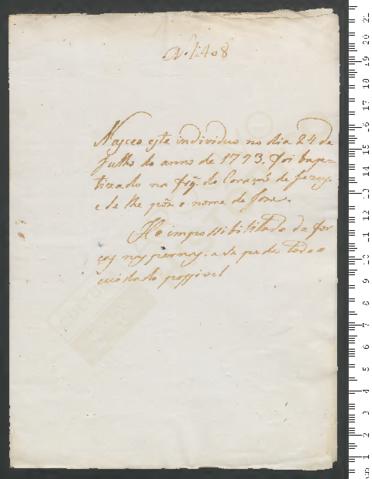 N. 1408
Nasceo este individuo no dia 24 de
Julho do anno de 1773. foi bap-
tizado na frg. do Coraçaõ de Jezus,
e se lhe pôs o nome de Joze.
He impossibilitado de for
ças nas pernas. e da pede todo o
cuidado possivel